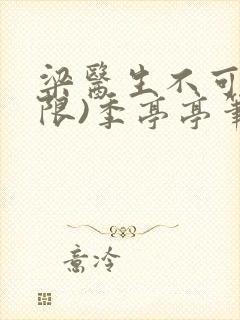 梁醫生不可
限)季亭亭筆
意冷